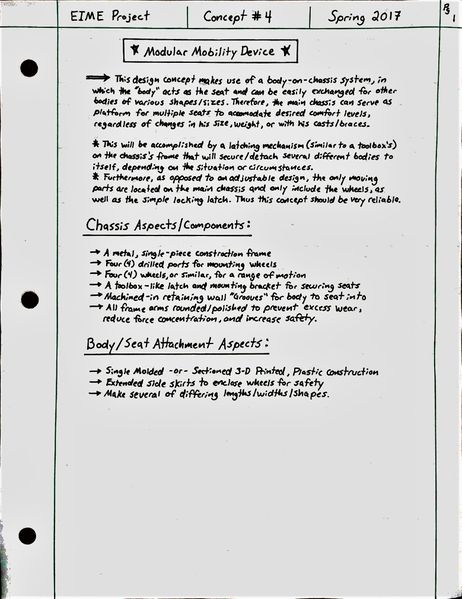 EIME Project Concept #4 Spring 2017 Pg 1
★ Modular Mobility Device ★
→ This design concept makes use of a body-on-chassis system, in
which the "body" acts as the seat and can be easily exchanged for other
bodies of various shapes/sizes. Therefore, the main chassis can serve as
platform for multiple seats to accomodate desired comfort levels,
regardless of changes in his size, weight, or with his casts/braces.
* This will be accomplished by a latching mechanism (similar to a toolbox's)
on the chassis's frame that will secure/detach several different bodies to
itself, depending on the situation or circumstances.
* Furthermore, as opposed to an adjustable design, the only moving
parts are located on the main chassis and only include the wheels, as
well as the simple locking latch. Thus this concept should be very reliable.
Chassis Aspects/Components:
→ A metal, single-piece construction frame
→ Four (4) drilled ports for mounting wheels
→ Four (4) wheels, or similar, for a range of motion
→ A toolbox-like latch and mounting bracket for securing seats
→ Machined-in retaining wall "grooves" for body to seat into
→ All frame arms rounded/polished to prevent excess wear,
reduce force concentration, and increase safety.
Body/Seat Attachment Aspects:
→ Single Molded -or- Sectioned 3-D Printed, Plastic construction
→ Extended side skirts to enclose wheels for safety
→ Make several of differing lengths/widths/shapes.